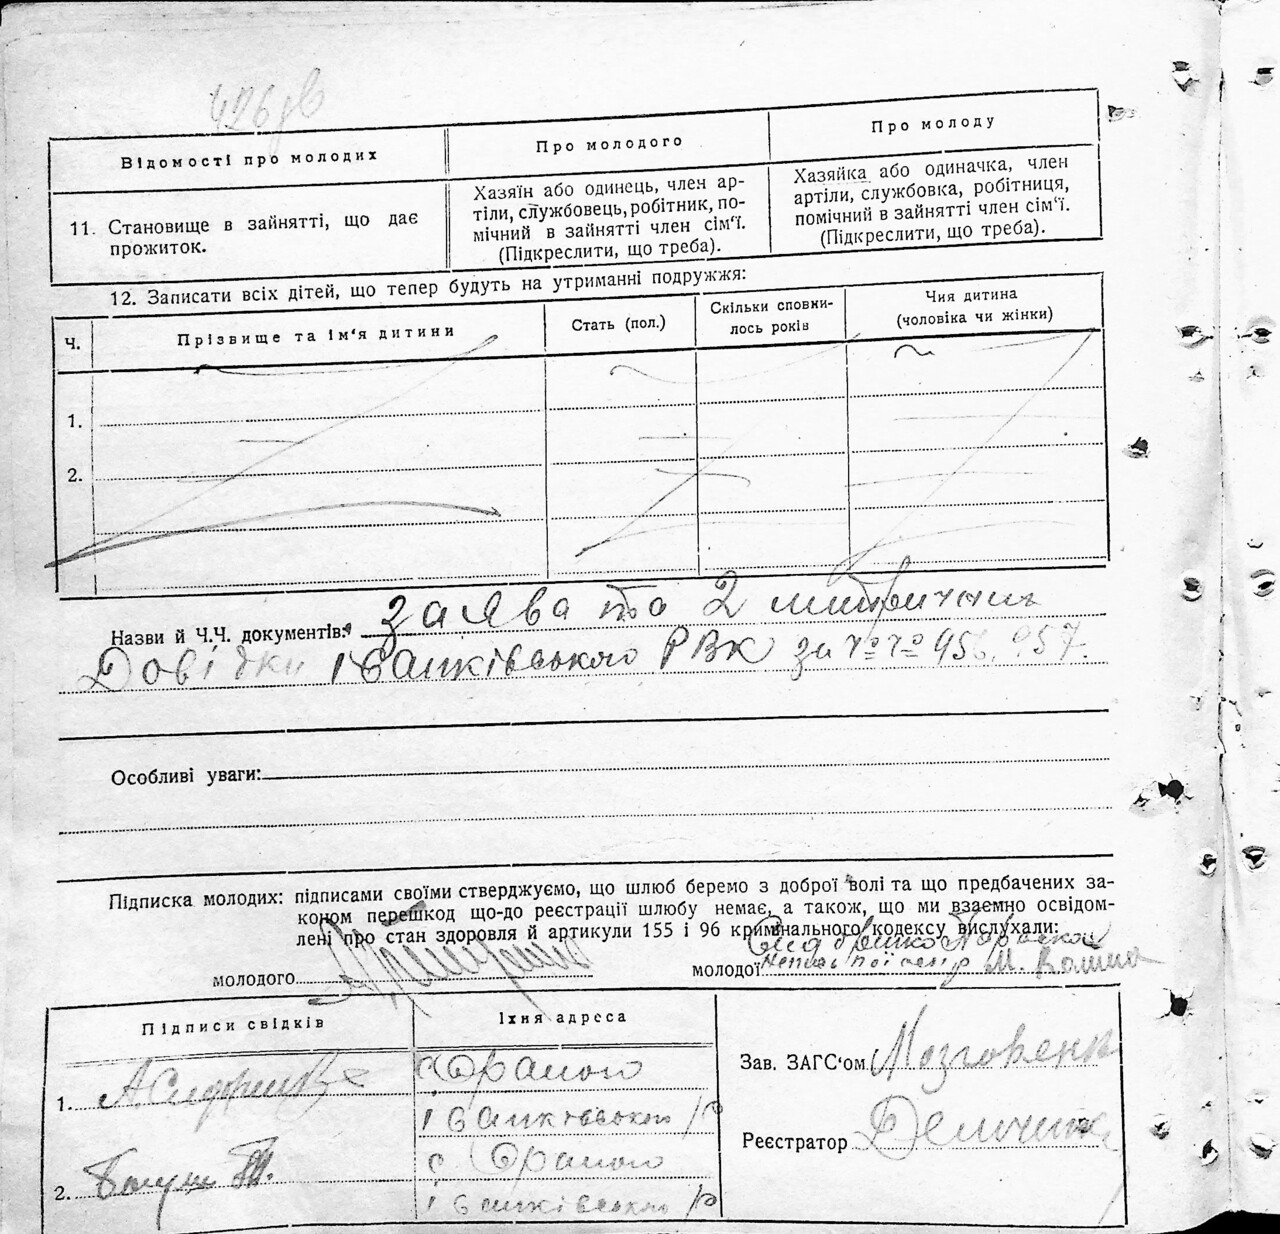 426зв
Відомості про молодих
Про молодого
Про молоду
11. Становище в зайнятті, що дає
прожиток.
Хазяїн або одинець, член ар-
тіли, службовець, робітник, по-
мічний в зайнятті член сім'ї.
(Підкреслити, що треба).
Хазяйка або одиначка, член
артіли, службовка, робітниця,
помічний в зайнятті член сім'ї.
(Підкреслити, що треба).
12. Записати всіх дітей, що тепер будуть на утриманні подружжя:
Ч.
Прізвище та ім'я дитини
Стать (пол.)
Скільки сповни-
лось років
Чия дитина
(чоловіка чи жінки)
1.
2.
Назви й Ч.Ч. документів: заява та 2 митричних
Довідки Іванківського РВК за №№ 956, 957.
Особливі уваги:
Підписка молодих: підписами своїми стверджуємо, що шлюб беремо з доброї волі та що предбачених за-
коном перешкод що-до реєстрації шлюбу немає, а також, що ми взаємно освідом-
лені про стан здоровля й артикули 155 і 96 кримінального кодексу вислухали:
молодого
молодої
Підписи свідків
Їхня адреса
1.
с. Ораного
Іванківського р/
2.
с. Ораного
Іванківського р/
Зав. ЗАГС'ом Мозговенко
Реєстратор